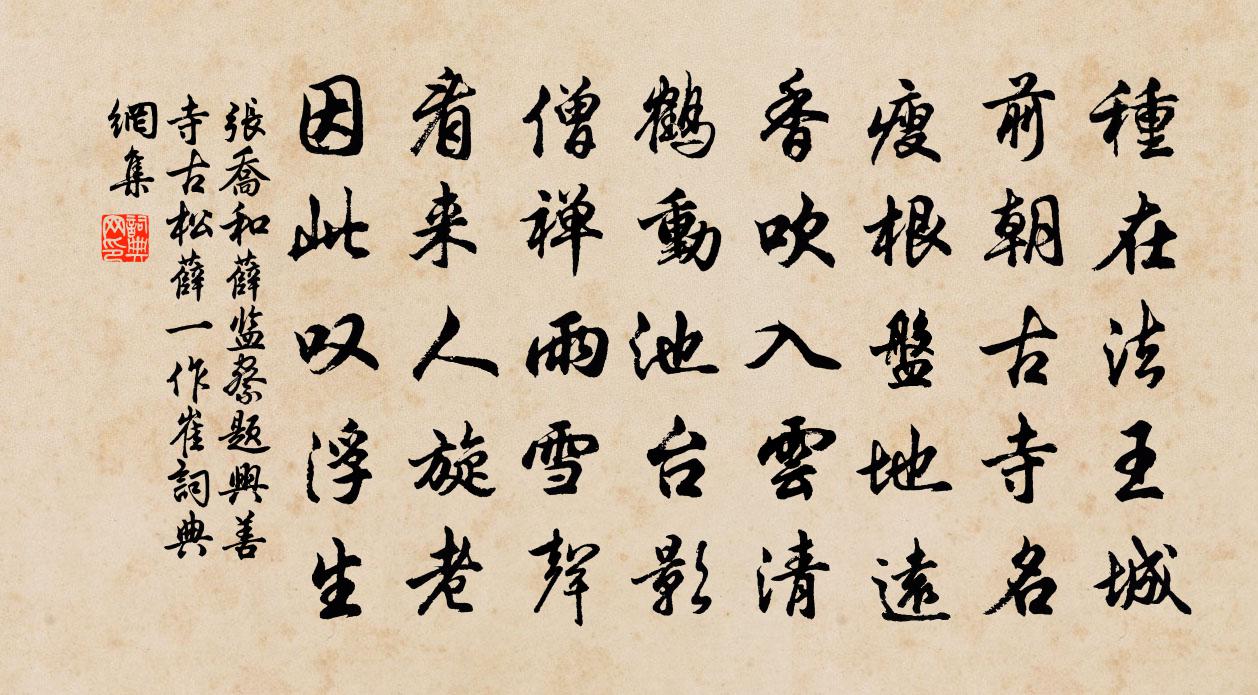 種在法王城
前朝古寺名
瘦根盤地遠
香吹入雲清
鶴動池台影
僧禅雨雪聲
看来人旋老
因此叹浮生
張喬和薛監察题興善
寺古松薛一作崔詞典
網集
詞典網印